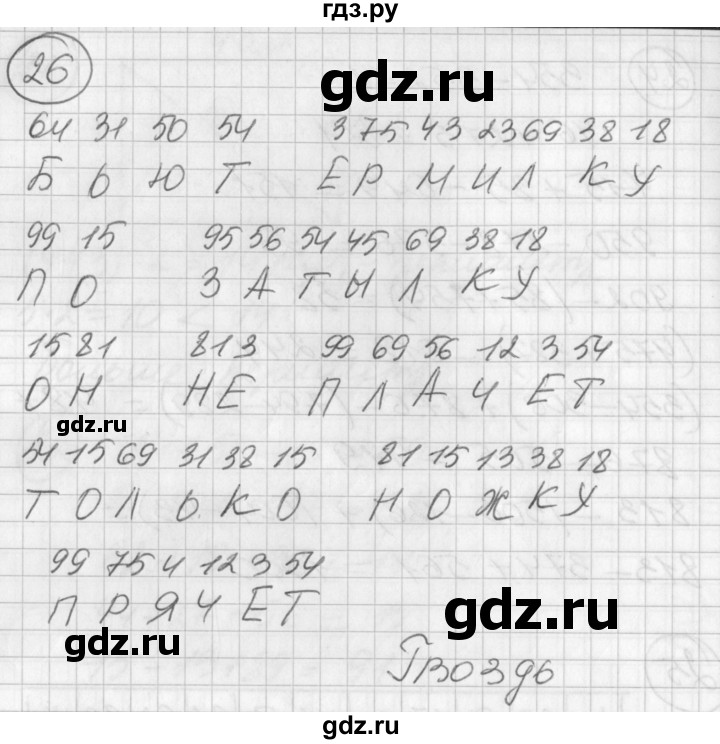 гдз.ру
26
gdz.ru
64 31 50 54 3 75 43 23 69 38 18
Б Ь Ю Т Е Р М И Л К У
99 15 95 56 54 45 69 38 18
П О З А Т Ы Л К У
15 81 81 3 99 69 56 12 3 54
О Н Н Е П Л А Ч Е Т
gdz.ru
54 15 69 31 38 15 81 15 13 38 18
Т О Л Ь К О Н О Ж К У
99 75 4 12 3 54
П Р Я Ч Е Т
gdz.ru
gdz.ru
Гвоздь
gdz.ru